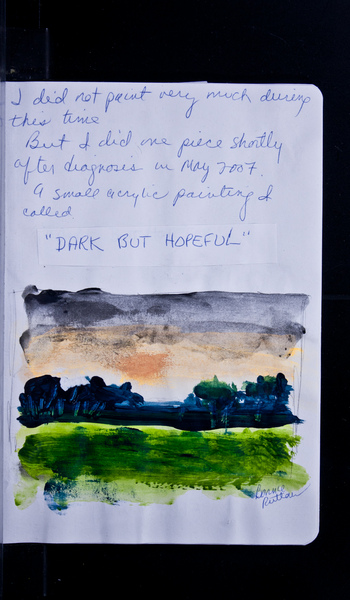 I did not paint very much during
this time
But I did one piece shortly
after diagnosis in May 2007.
A small acrylic painting I
called
"DARK BUT HOPEFUL"
Bonnie